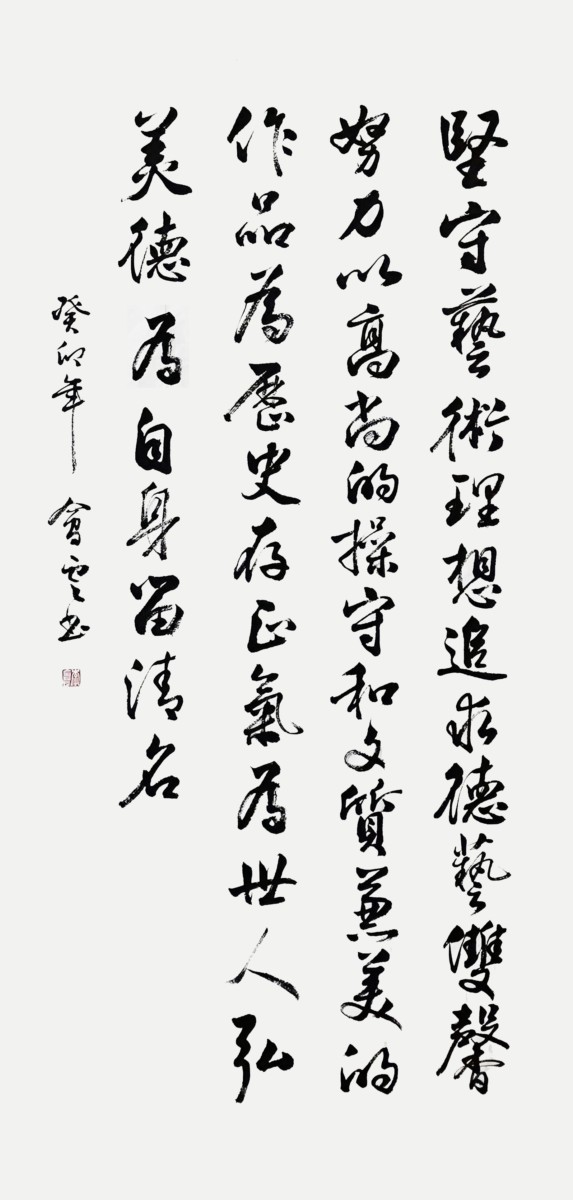 堅守藝術理想追求德藝雙馨
努力以高尚的操守和文質兼美的
作品為歷史存正氣為世人弘
美德為自身留清名
癸卯年 會雲書